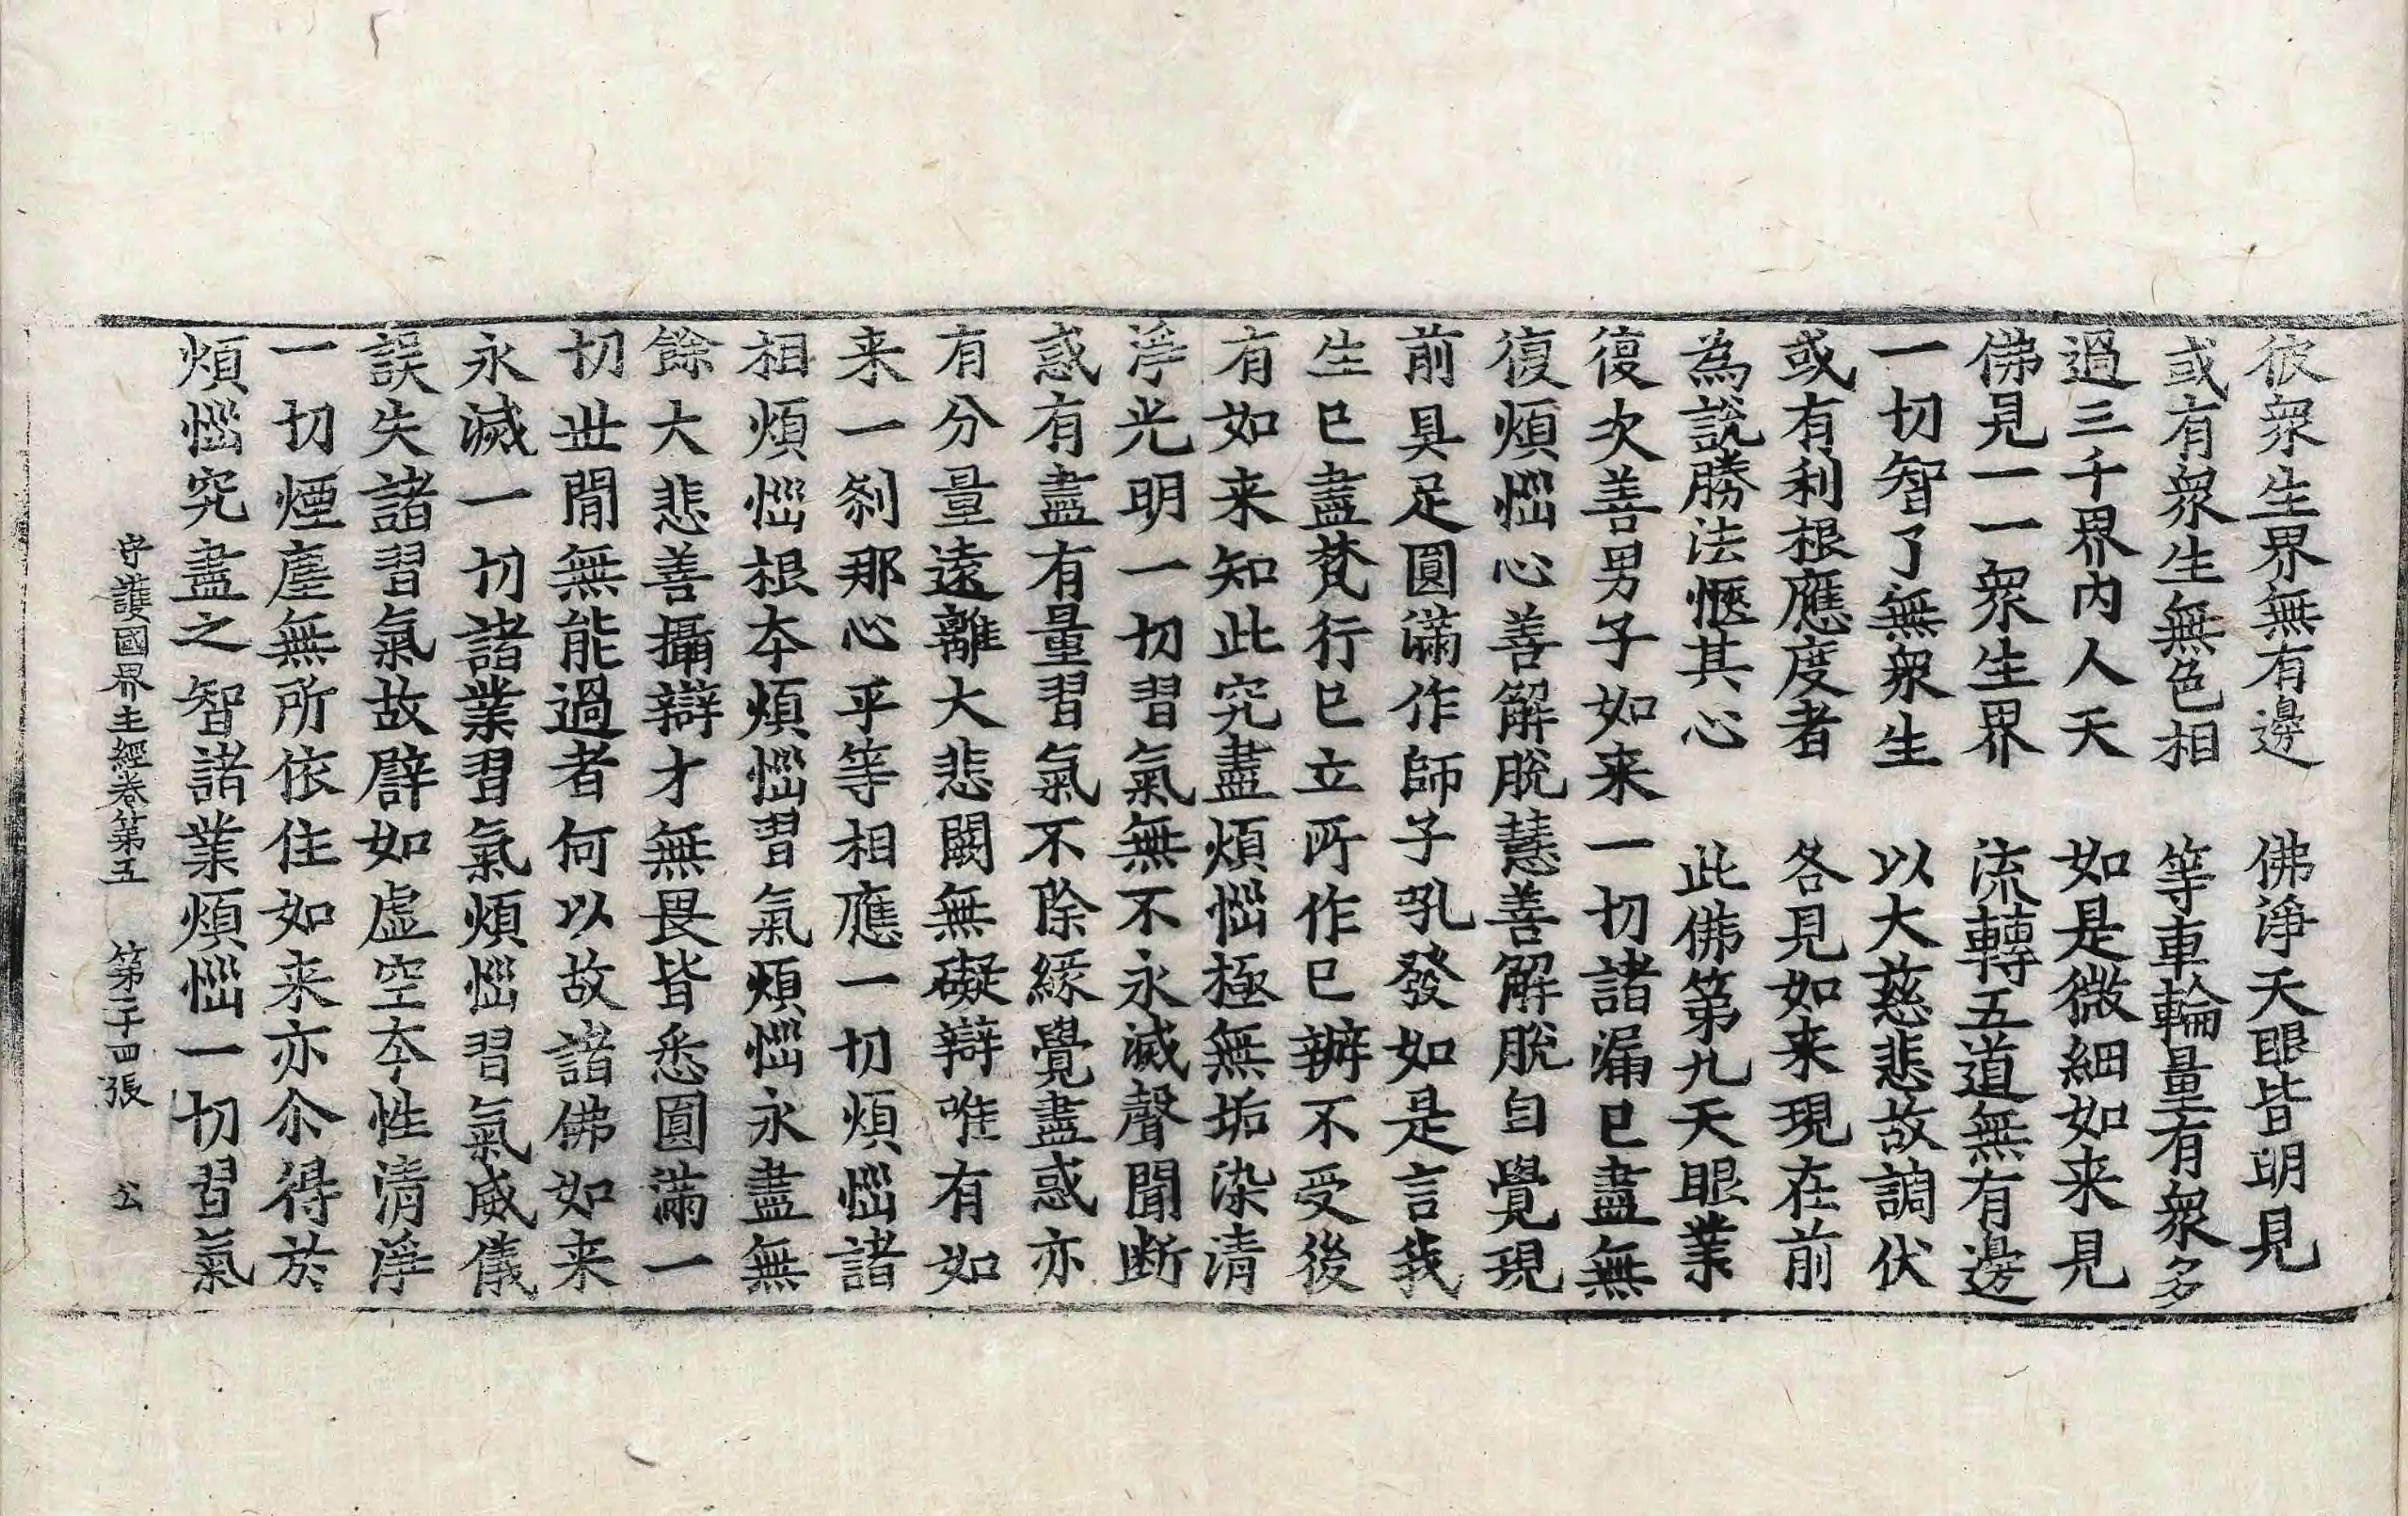 彼衆生界無有邊　佛淨天眼皆明見
或有衆生無色相　等車輪量有衆多
過三千界內人天　如是微細如来見
佛見一一衆生界　流轉五道無有邊
一切智了無衆生　以大慈悲故調伏
或有利根應度者　各見如来現在前
為說勝法愜其心　此佛第九天眼業
復次善男子如来一切諸漏已盡無
復煩惱心善解脫慧善解脫自覺現
前具足圓滿作師子吼發如是言我
生已盡梵行已立所作已辦不受後
有如来知此究盡煩惱極無垢染清
淨光明一切習氣無不永滅聲聞断
惑有盡有量習氣不除緣覺盡惑亦
有分量遠離大悲闕無礙辯唯有如
来一刹那心平等相應一切煩惱諸
相煩惱根本煩惱習氣煩惱永盡無
餘大悲善攝辯才無畏皆悉圓滿一
切世間無能過者何以故諸佛如来
永滅一切諸業習氣煩惱習氣威儀
誤失諸習氣故譬如虛空本性清淨
一切煙塵無所依住如来亦尒得於
煩惱究盡之智諸業煩惱一切習氣
守護國界主經卷第五　第二十四張　公